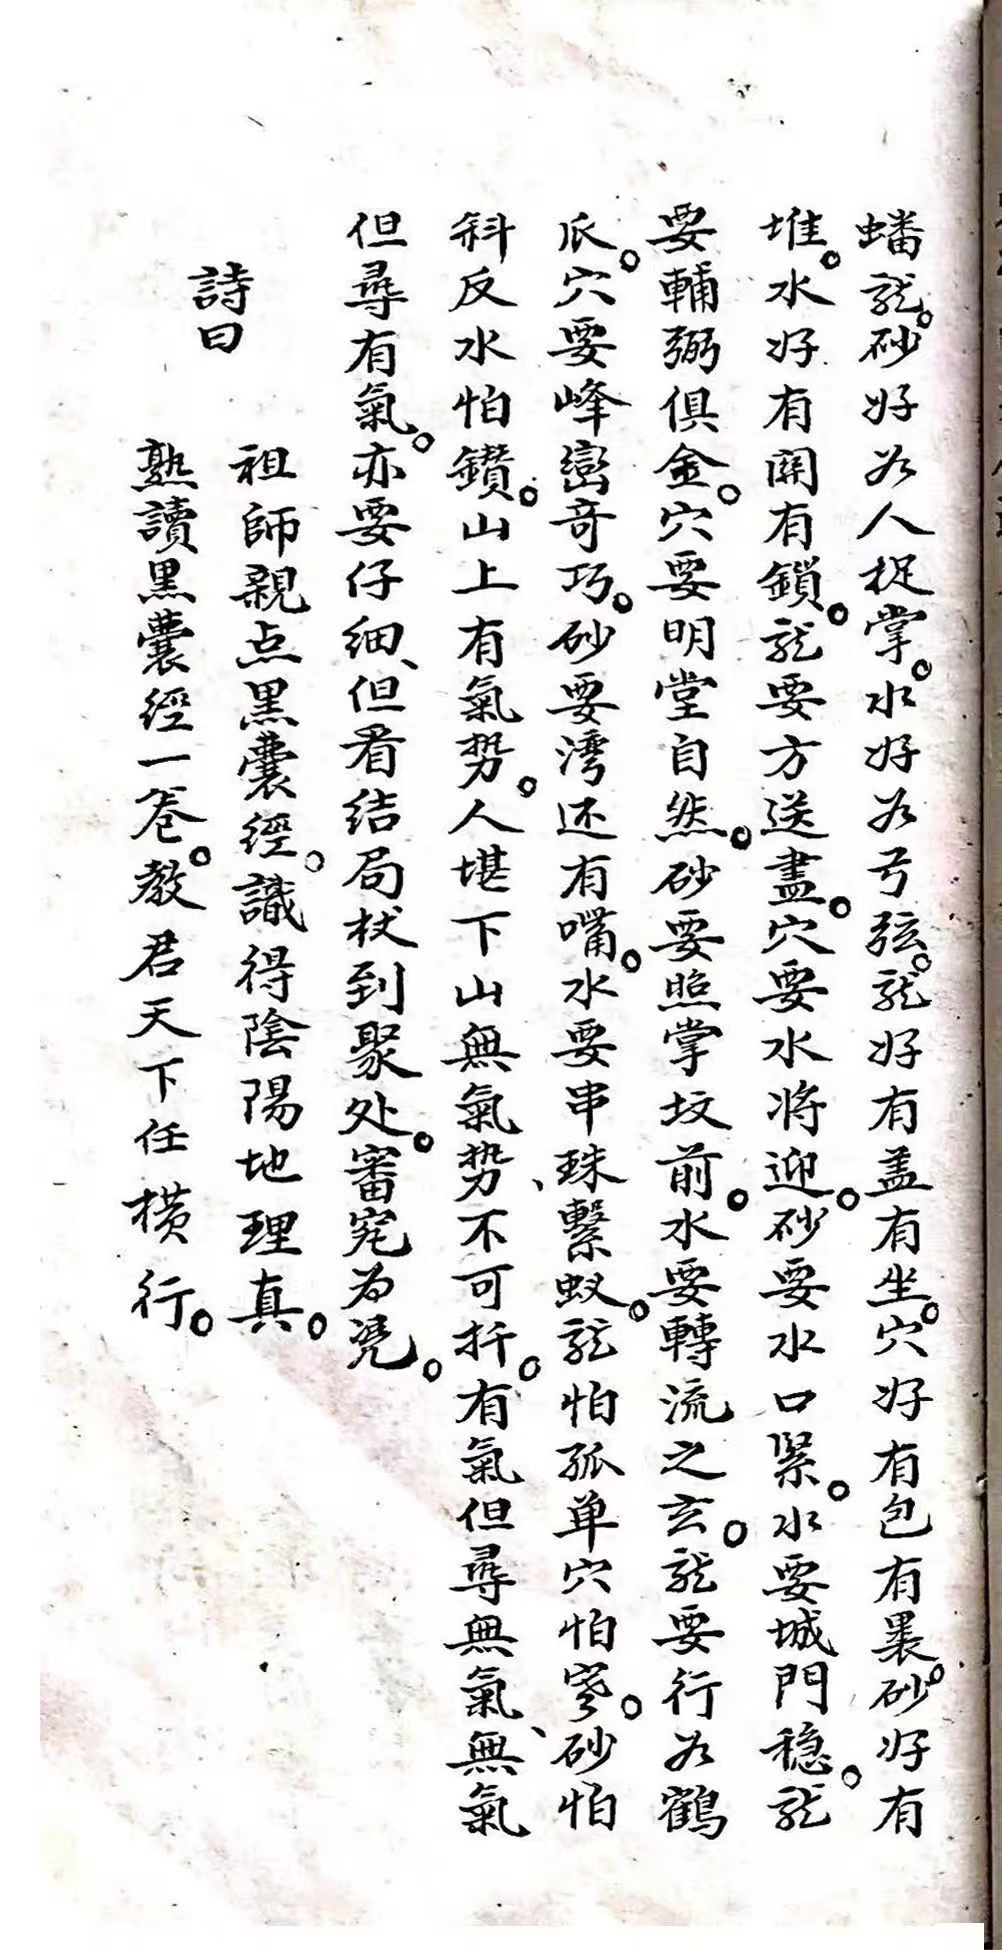 蟠龍。砂好为人捉掌。水好为弓弦。龍好有盖有坐。穴好有包有裹。砂好有
堆。水好有関有鎖。龍要方送盡。穴要水将迎。砂要水口緊。水要城門稳。龍
要輔弼俱金。穴要明堂自然。砂要照掌坟前。水要轉流之玄。龍要行为鶴
爪。穴要峰巒竒巧。砂要湾还有嘴。水要串珠、繫蚁。龍怕孤单穴怕窂。砂怕
斜反水怕鑚。山上有氣势。人堪下山無氣势、不可扦。有氣但尋無氣、無氣
但尋有氣。亦要仔细、但看结局杖到聚处。審究为凭。
詩曰
祖師親点黒囊經。識得陰陽地理真。
熟讀黒囊經一卷。教君天下任横行。